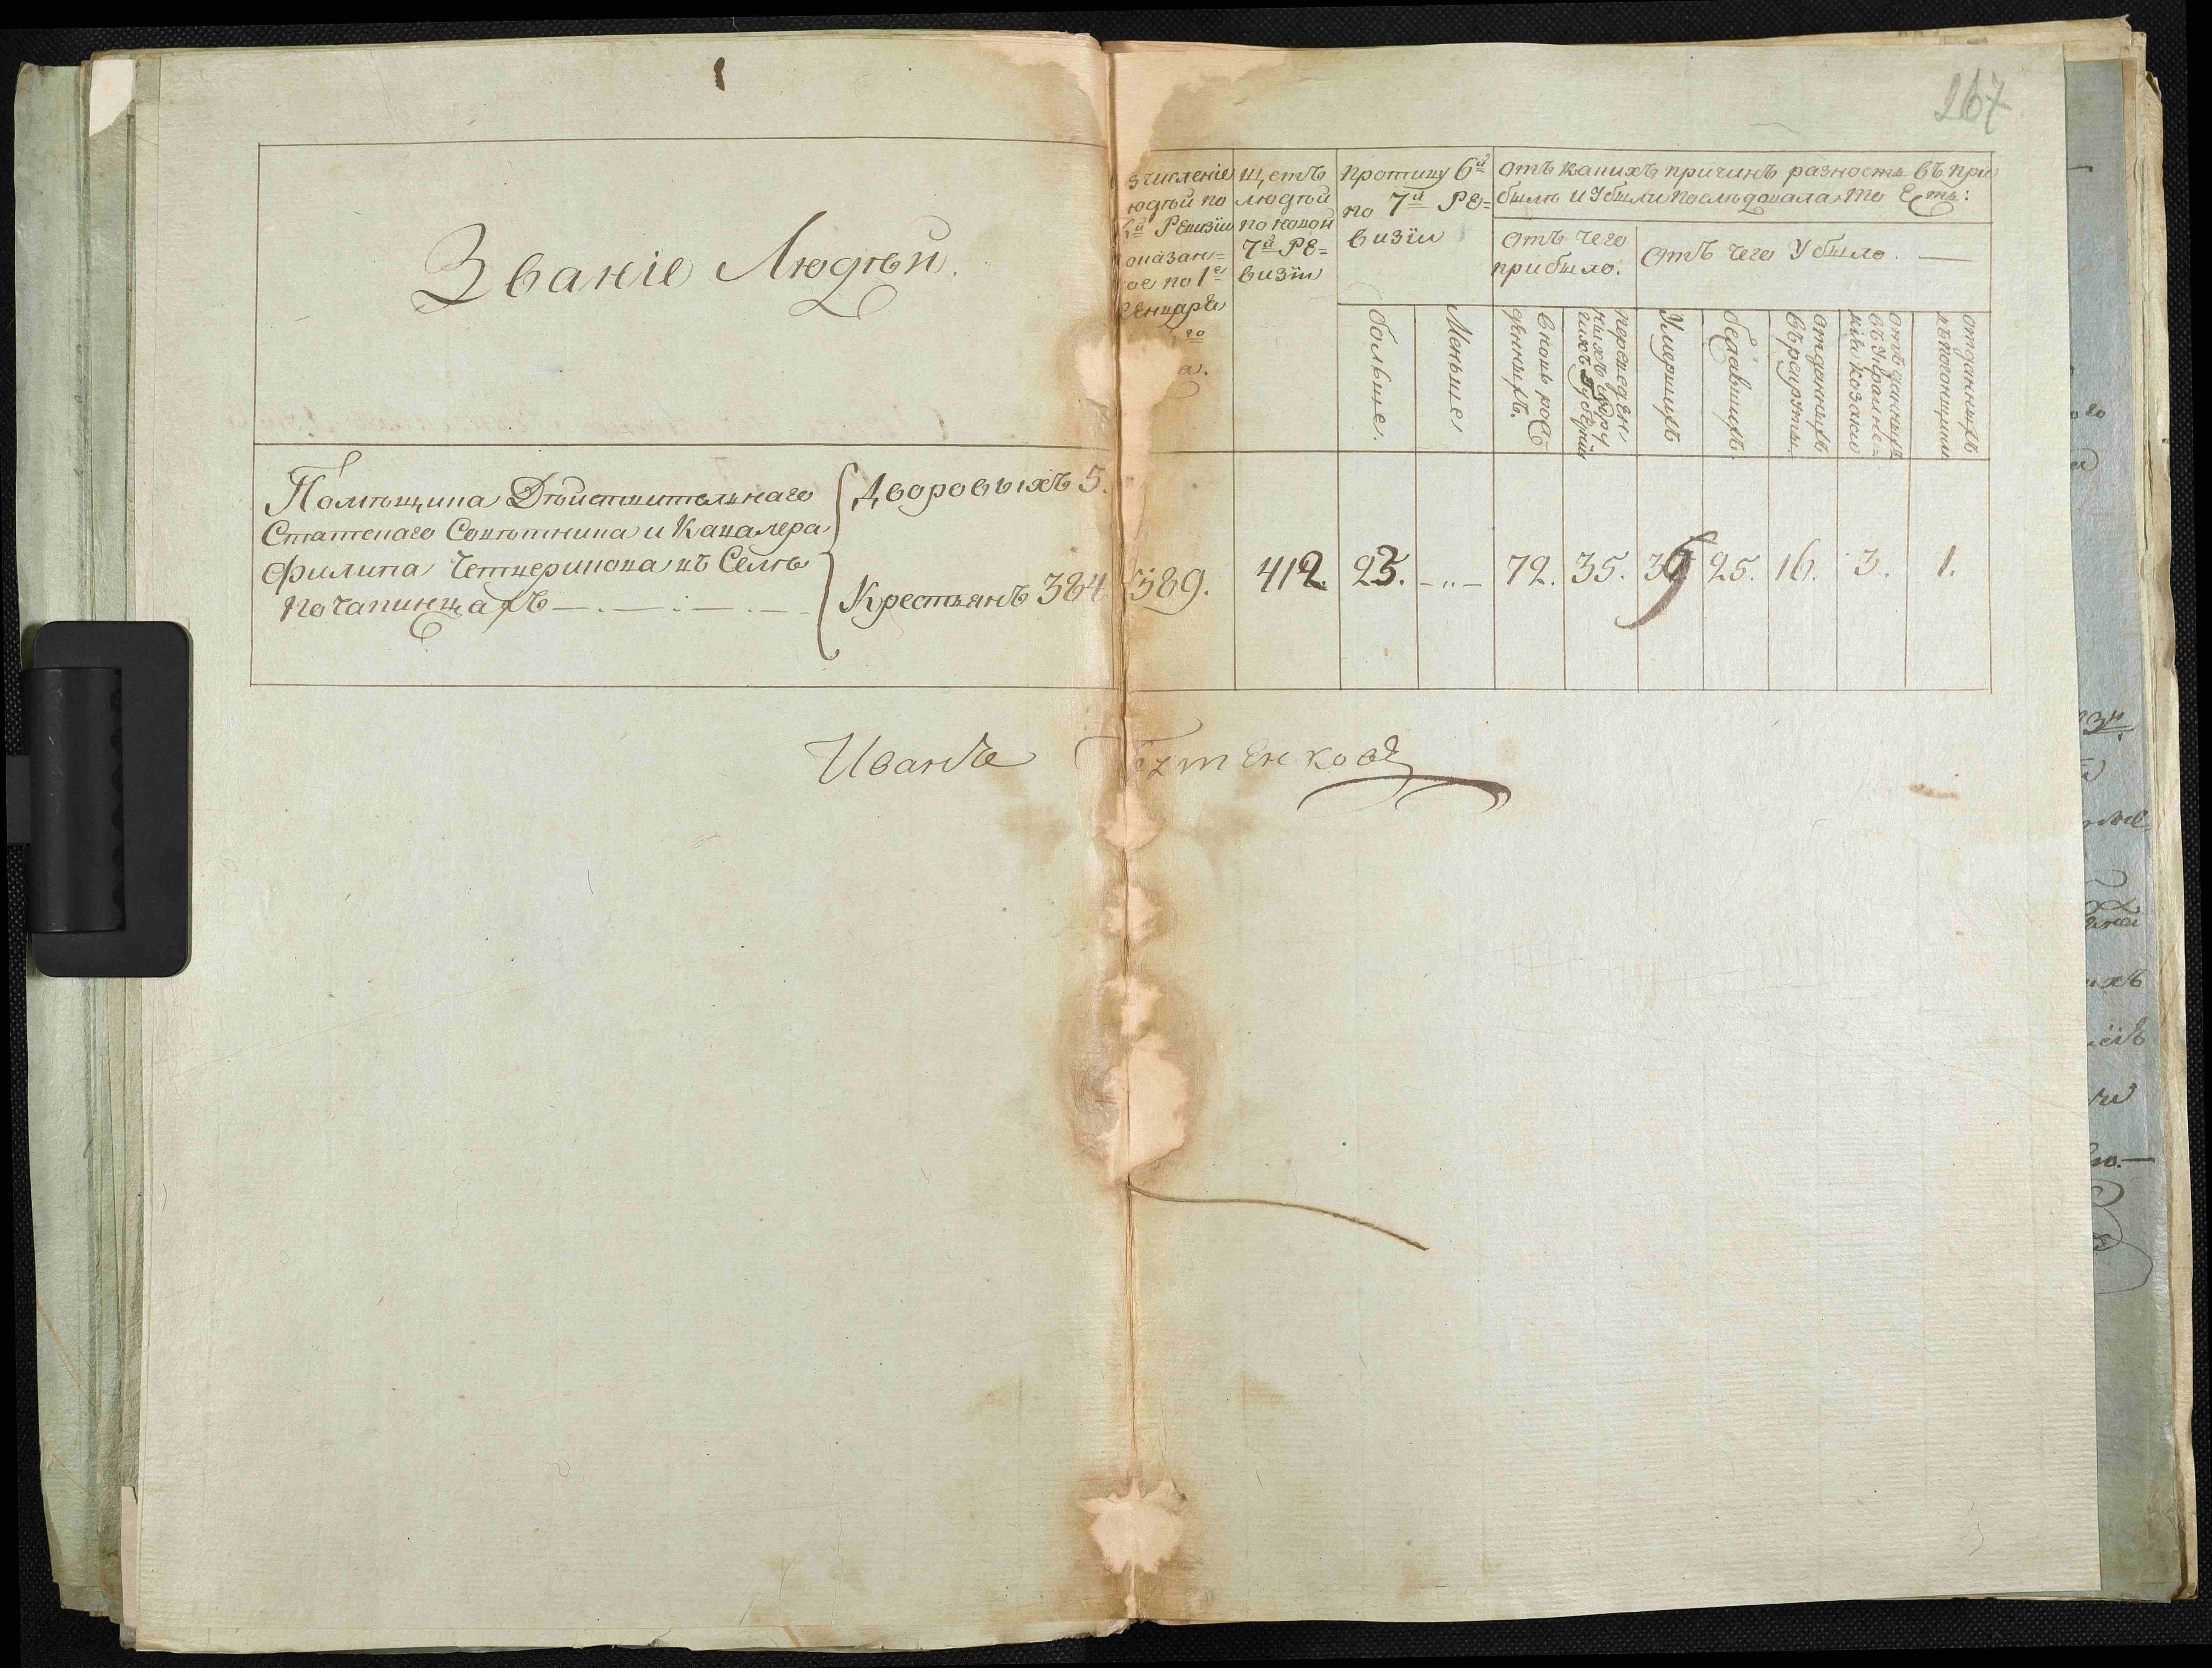 267
Званіе Людѣй.
зчисленіе
юдѣй по
6й Ревизіи
оказан=
ое по 1е
Генваря
го
а.
Щетъ
людѣй
по новой
7й Ре=
визіи
противу 6й
по 7й Ре=
визіи
больше.
Меньше
отъ какихъ причинъ разность въ при
былѣ и Убыли последовала, то Есть:
отъ чего
прибыло.
вновь рож
денныхъ.
отъ чего Убыло. —
Умершихъ
бежавшихъ.
отданныхъ
врекруты.
отъданныхъ
въ Украинс=
кіи козаки
отданныхъ
въпогонщики
Помѣщика Дѣйствительнаго
Статскаго Совѣтника и Кавалера
Филипа Четверикова въ Селѣ
Почапинцахъ — . — . — . —
Дворовыхъ 5.
Крестьянъ 384.
389. 412. 23. — „ — 72. 35. 39. 25. 16. 3. 1.
Иванъ